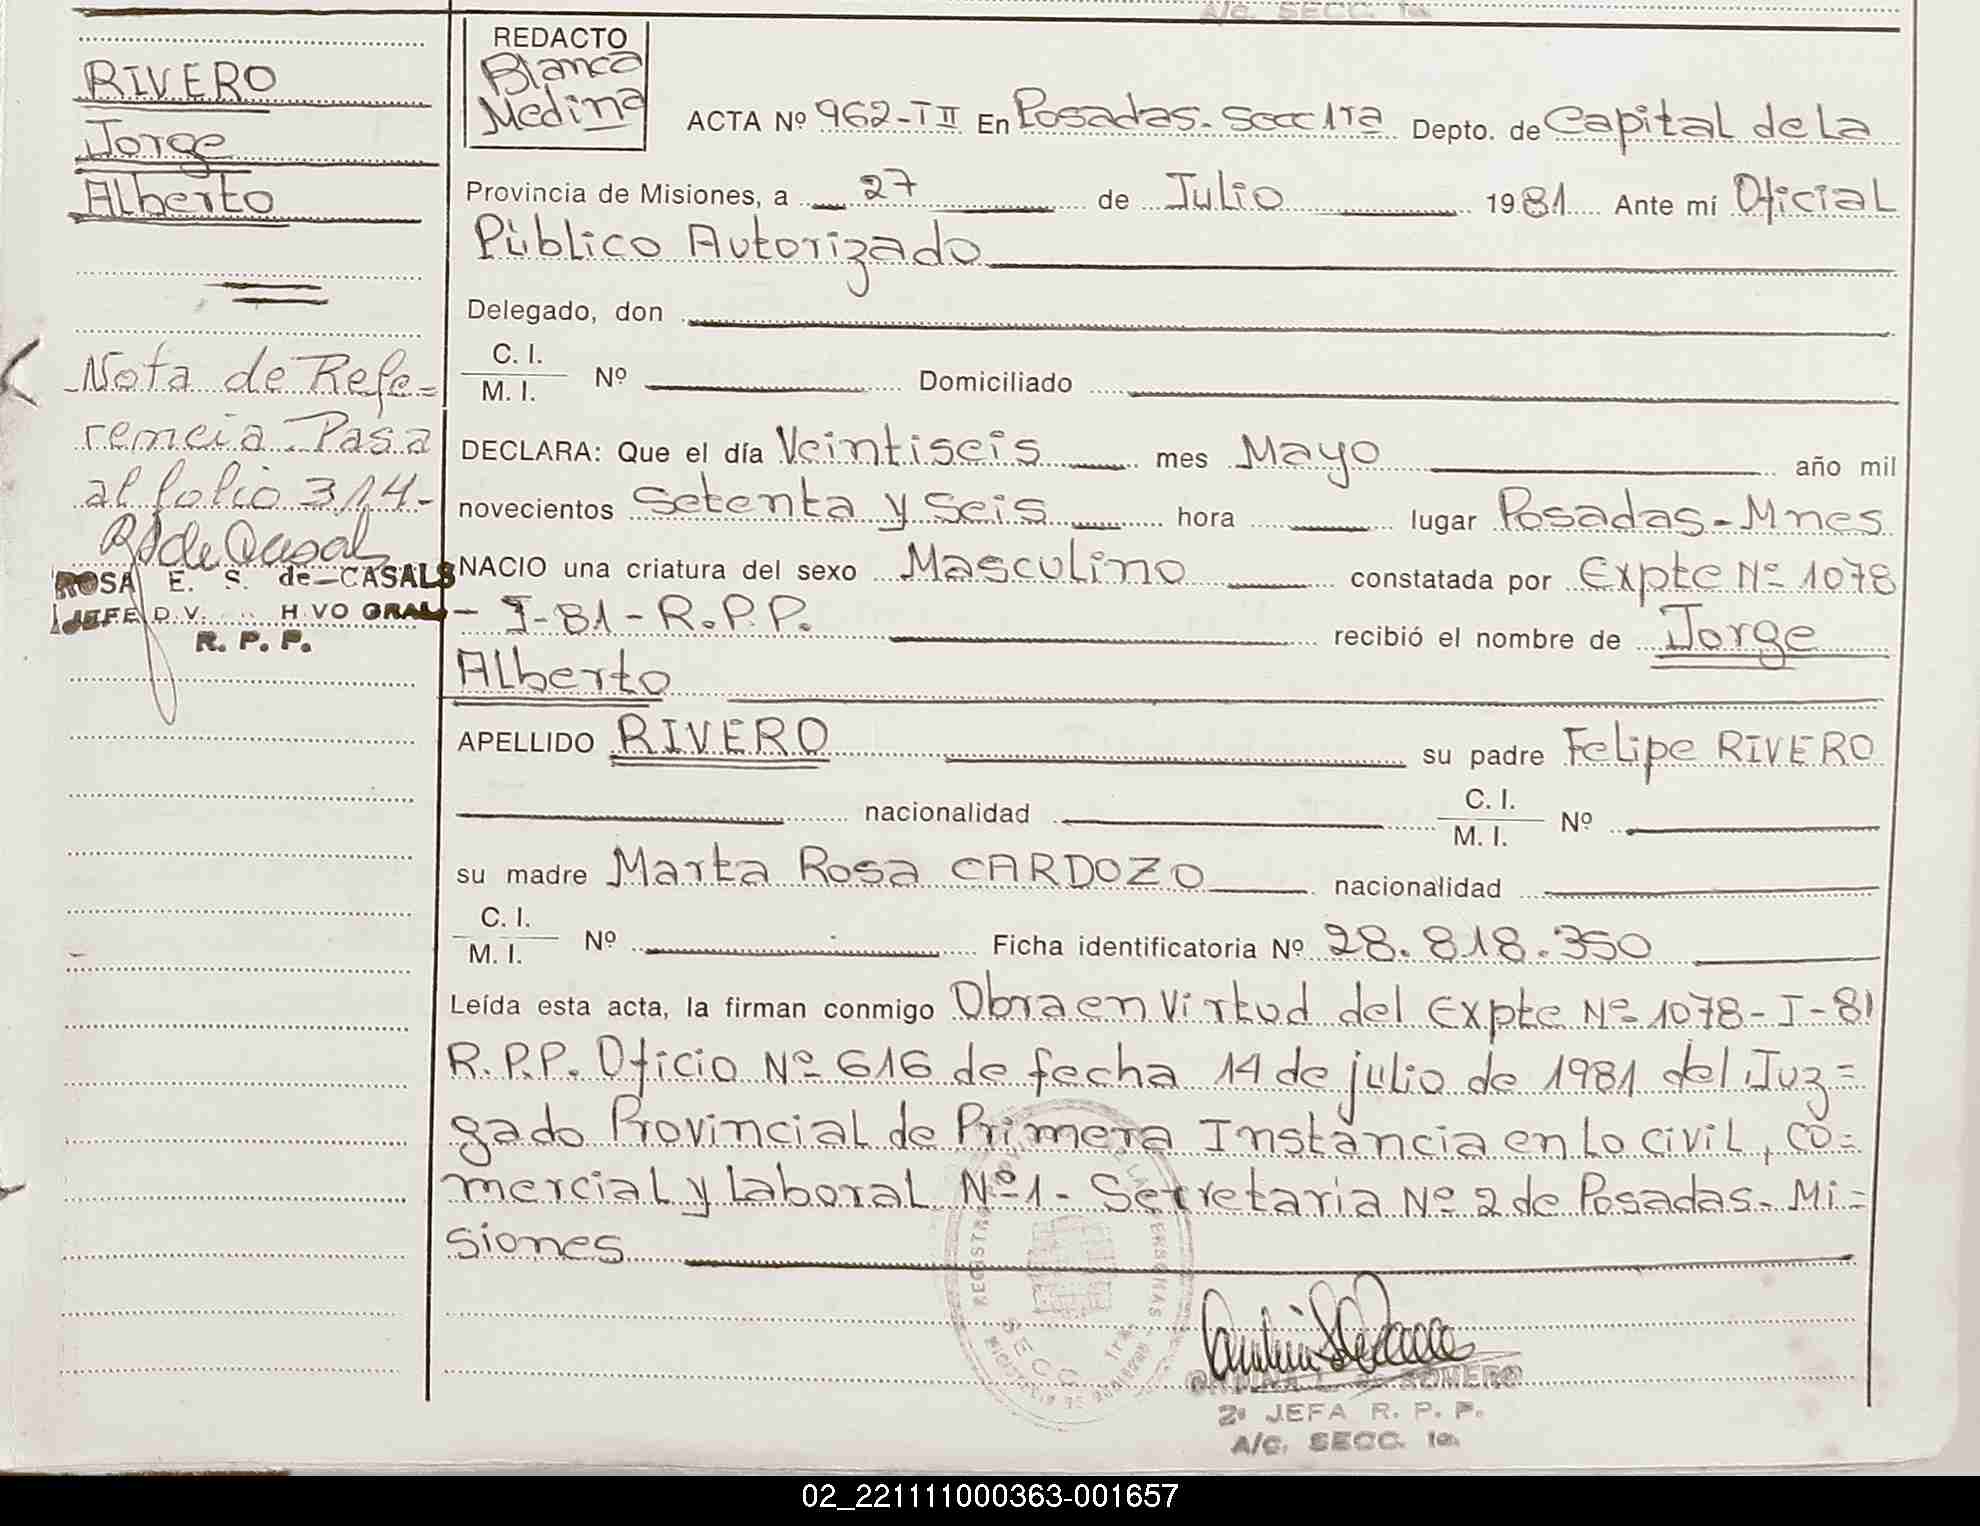 A/c. SECC. 1a.
RIVERO
Jorge
Alberto
Nota de Refe=
rencia. Pasa
al folio 314-
ROSA E. S. de CASALS
R. P. P.
REDACTO
Blanca
Medina
ACTA Nº 962-TII En Posadas-Secc 1ra Depto. de Capital de la
Provincia de Misiones, a 27 de Julio 1981 Ante mí Oficial
Público Autorizado
Delegado, don
C. I.
M. I. Nº Domiciliado
DECLARA: Que el día Veintiseis mes Mayo año mil
novecientos setenta y seis hora lugar Posadas-Mnes
NACIO una criatura del sexo Masculino constatada por Expte Nº 1078
- I-81-R.P.P. recibió el nombre de Jorge
Alberto
APELLIDO RIVERO su padre Felipe RIVERO
nacionalidad C. I. M. I. Nº
su madre Marta Rosa CARDOZO nacionalidad
C. I.
M. I. Nº Ficha identificatoria Nº 28.818.350
Leída esta acta, la firman conmigo Obra en Virtud del Expte Nº 1078-I-81
R.P.P. Oficio Nº 616 de fecha 14 de julio de 1981 del Juz=
gado Provincial de Primera Instancia en lo civil, co=
mercial y laboral Nº 1- Secretaria Nº 2 de Posadas-Mi=
siones
SECC. 1ra.
2º JEFA R. P. P.
A/C. SECC. 1a.
02_221111000363-001657